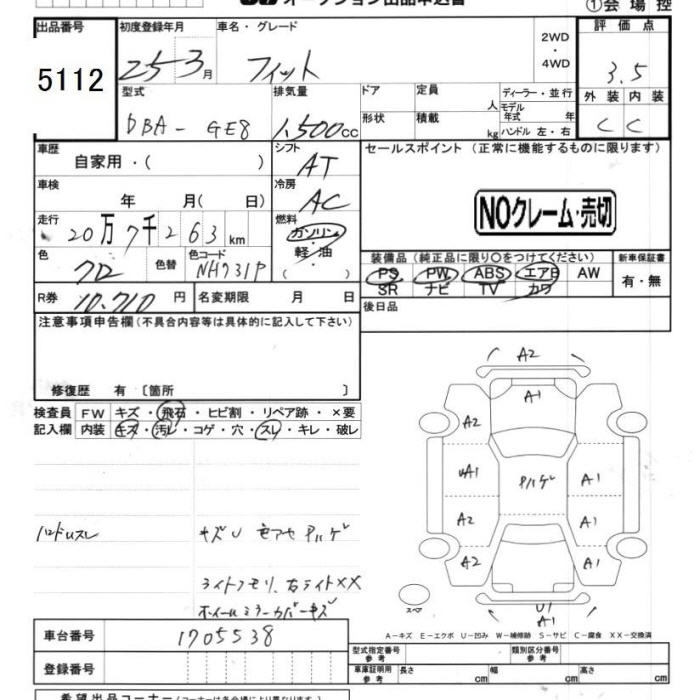 オークション出品申込書 ①会場控
出品番号 初度登録年月 車名・グレード 2WD・4WD 評価点
5112 25-3月 フィット 3.5
型式 排気量 ドア 定員 人 ディーラー・並行 外装 内装
DBA-GE8 1,500cc 形状 積載 kg モデル年式 年 ハンドル 左・右 C C
車歴 自家用・( ) シフト AT セールスポイント(正常に機能するものに限ります)
車検 年 月( 日) 冷房 AC
NOクレーム・売切
走行 20万7千263km 燃料 ガソリン 軽・油 ( )
装備品(純正品に限り〇をつけてください) 新車保証書
色 クロ 色替 色コード NH731P PS PW ABS エアB AW 有・無
SR ナビ TV カワ
R券 10,710円 名変期限 月 日 後日品
注意事項申告欄(不具合内容等は具体的に記入して下さい)
修復歴 有 〔箇所 〕
検査員 FW キズ・飛石・ヒビ割・リペア跡・×要
記入欄 内装 キズ・汚レ・コゲ・穴・スレ・キレ・破レ
A2
A1
A2
A1 ハゲ A1
A2 A1
A2 A1
U1
A1
スペア
ハンドルスレ キズU モアセ ハゲ
ライトクモリ、右ライトXX
ホイールミラーカバーキズ
A-キズ E-エクボ U-凹み W-補修跡 S-サビ C-腐食 XX-交換済
車台番号 1705538
型式指定番号 参考 類別区分番号 参考
登録番号 車庫証明用 参考 長さ cm 幅 cm 高さ cm
希望出品コーナー